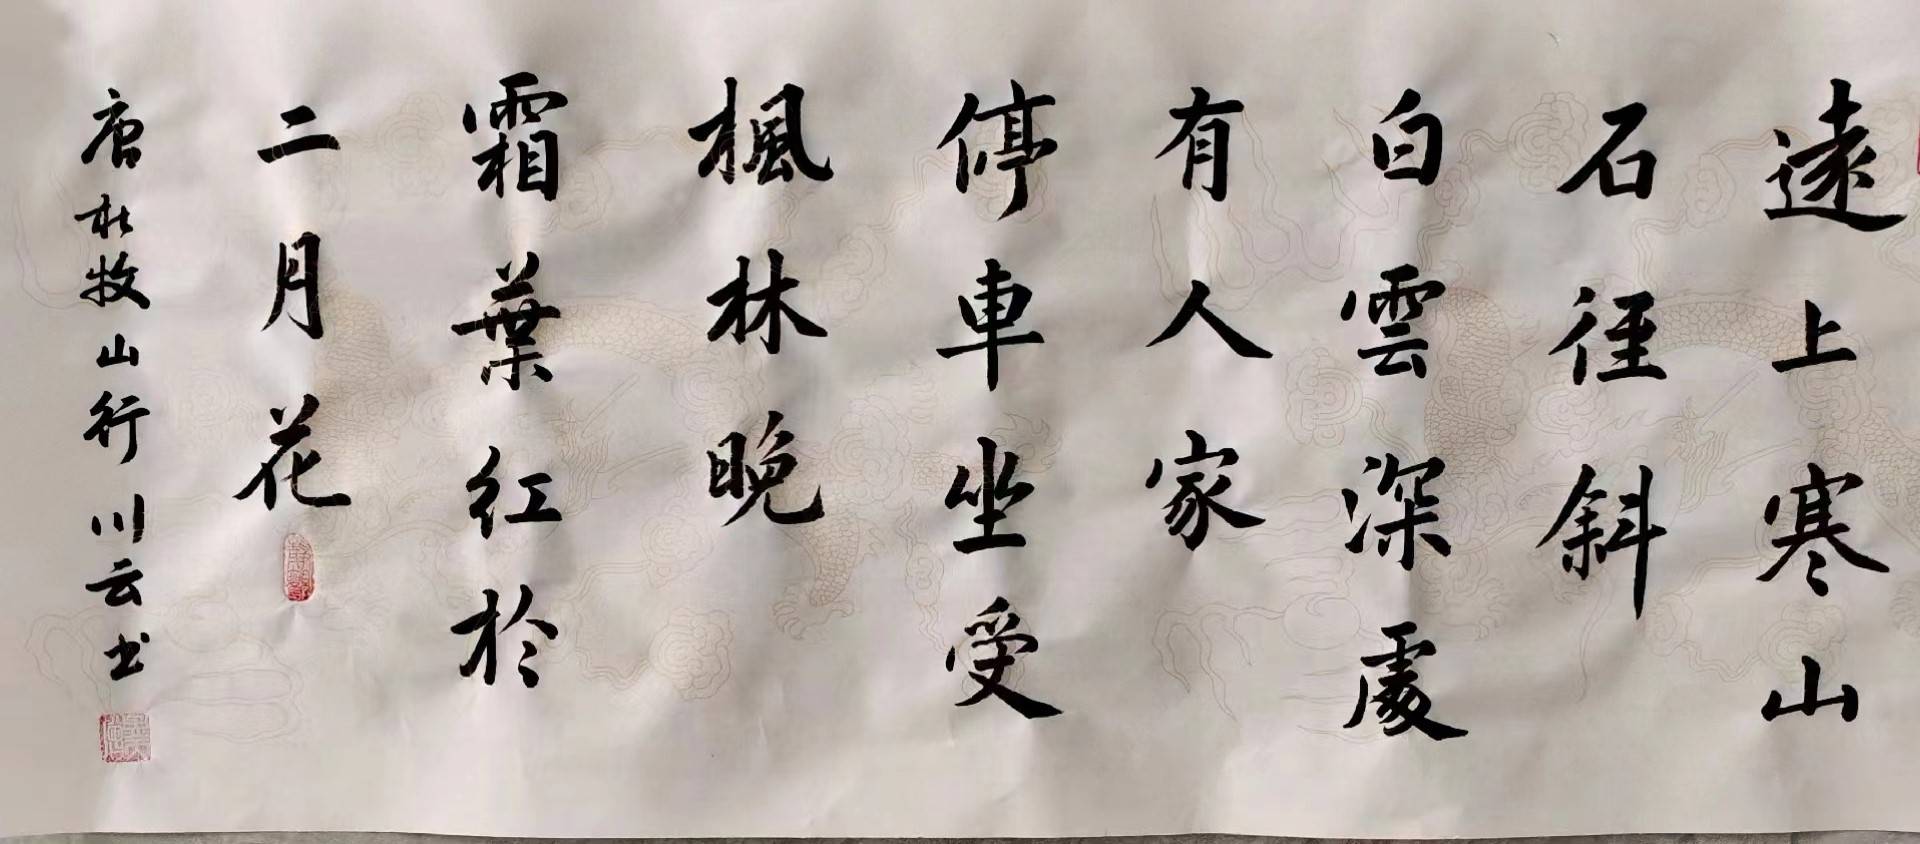 遠上寒山
石徑斜
白雲深處
有人家
停車坐愛
楓林晚
霜葉红於
二月花
唐杜牧山行 川云书